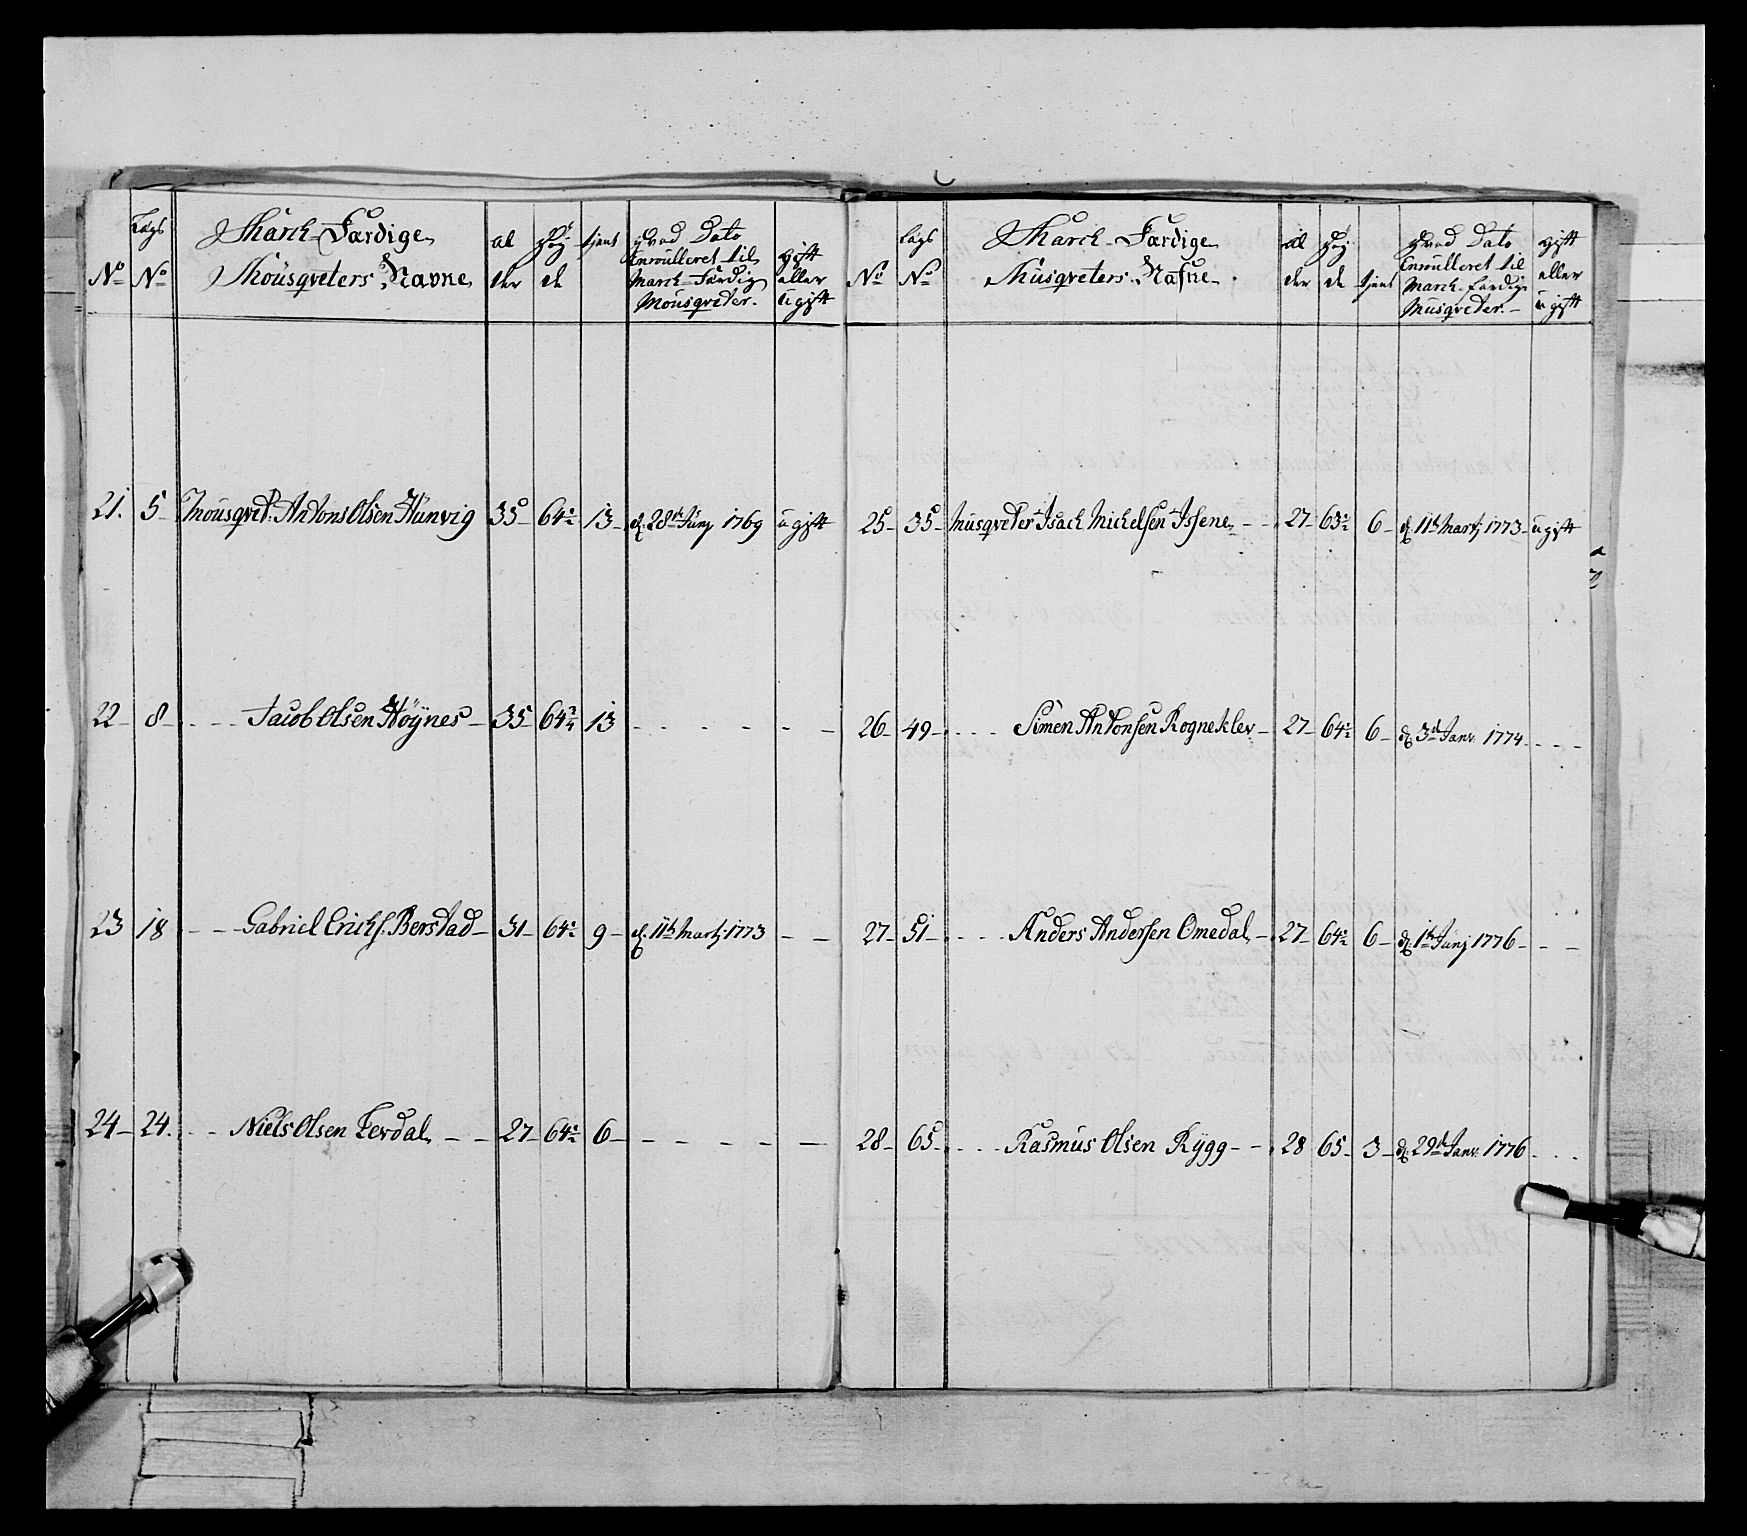 No
Lags No
March-Færdige Mousqveters Navne
al der
Høy de
tient
Hvad Dato Enroulleret til March-Færdig Mousqveter.
gift eller ugift
21. 5 Mousqvet. Antons Olsen Hunvig 35 64½ 13 d. 28de Junj 1769 ugift
22 8 Jacob Olsen Höÿnes 35 64¾ 13
23 18 Gabriel Erichs. Berstad 31 64½ 9 d. 11te Martj 1773
24 24. Niels Olsen Ferdal 27 64½ 6
No
Lags No
March-Færdige Musqveters Nafne
al der
Høy de
tient
Hvad Dato Enroulleret til March-færdig Musqveter.
gift eller ugift
25 35 Musqveter Isach Michelsen Issene 27 63½ 6 d. 11te Martj 1773 ugift
26 49 Simen Antonsen Rogneklev 27 64½ 6 d. 3de Janv. 1774
27 51 Anders Andersen Omedal 27 64½ 6 d. 1te Junj 1776
28 65 Rasmus Olsen Rÿgg 28 65 3 d. 29de Janv. 1776